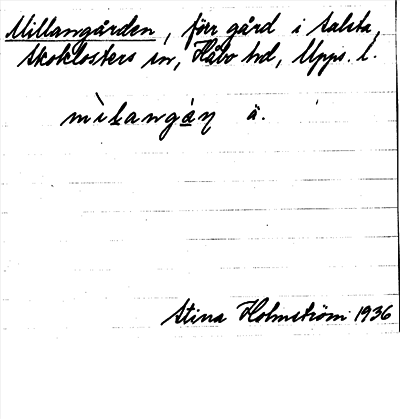 Millangården, förr gård i Salsta,
Skoklosters sn, Håbo hd, Upps. l.
mìlangán ä.
Stina Holmström 1936